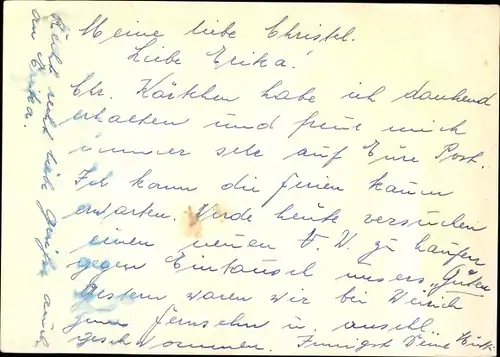 Meine liebe Christel.
Liebe Erika!
Ihr. Kärtchen habe ich dankend
erhalten und freue mich
immer sehr auf Eure Post.
Ich kann die Ferien kaum
erwarten. Werde heute versuchen
einen neuen T. W. zu kaufen
gegen Eintausch unsers „Guten
Gestern waren wir bei
zum Fernsehn u. anschl.
geschwommen. Innigst Deine
Recht recht liebe Grüße auch
an Erika.